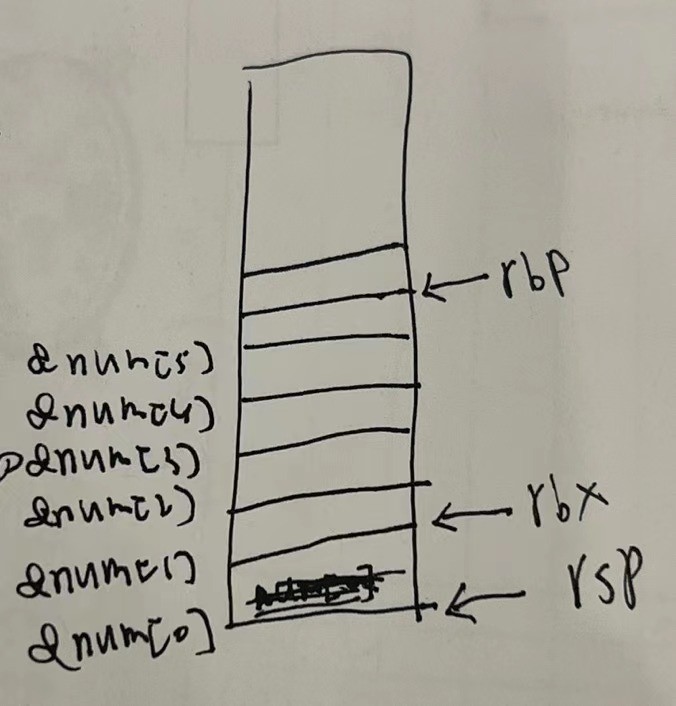 rbp
&num[5]
&num[4]
&num[3]
&num[2]
rbx
&num[1]
rsp
&num[0]